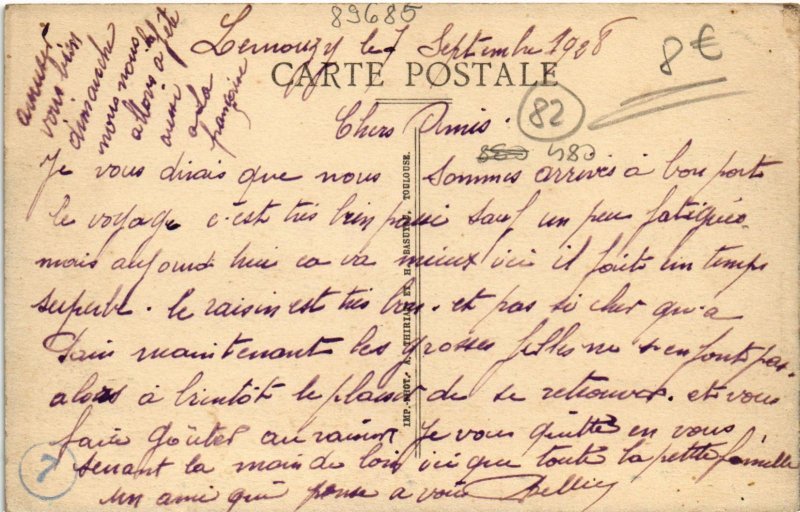 89685
7 Septembre 1928
8€
CARTE POSTALE
82
480
Chers Amis.
Je vous dirais que nous sommes arrivés à bon port
le voyage c'est très bien passé sauf un peu fatiguée
mais aujourd'hui ça va mieux ici il fait un temps
superbe. le raisin est très bon. et pas si cher qu'a
maintenant les grosses filles ne s'en font pas.
alors à bientôt le plaisir de se retrouver. et vous
faire goûter au raisin Je vous quitte en vous
serrant la main de loin ici que toute la petite famille
un ami qui pense a vous
amuser
vous bien
dimanche
nous nous
allons a fête
aussi
a La
française
IMP.-PHOT. A. THIRIAT ET H. BASUYAU, TOULOUSE.
7